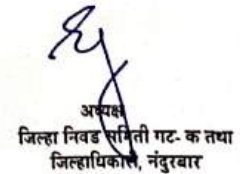 अध्यक्ष
जिल्हा निवड समिती गट- क तथा
जिल्हाधिकारी, नंदुरबार